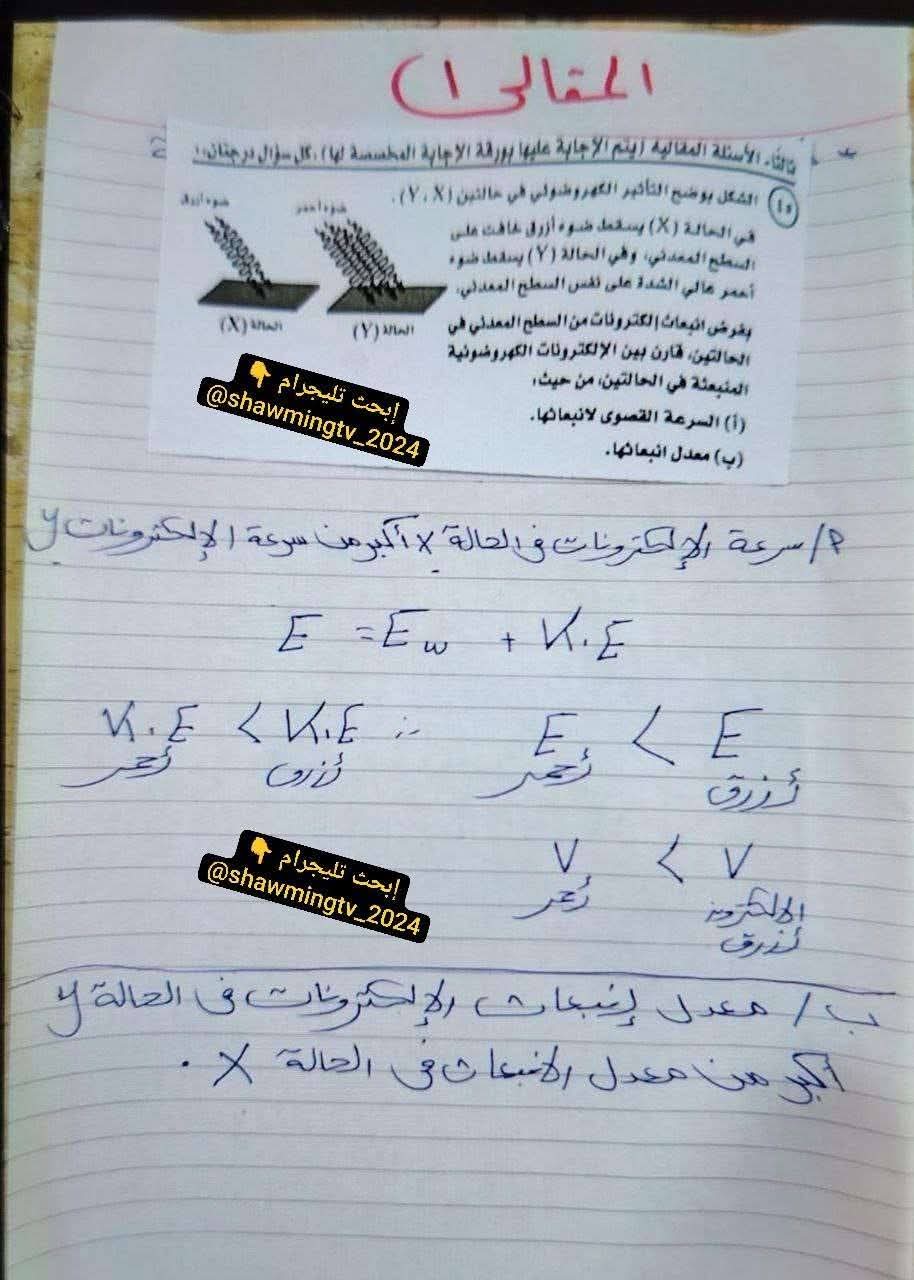 المقالى ١)
ثالثًا، الأسئلة المقالية (يتم الإجابة عليها بورقة الإجابة المخصصة لها) ، كل سؤال درجتان،
٤٥ الشكل يوضح التأثير الكهروضوئي في حالتين (Y ، X) .
في الحالة (X) يسقط ضوء أزرق خافت على
السطح المعدني، وفي الحالة (Y) يسقط ضوء
أحمر عالي الشدة على نفس السطح المعدني.
بفرض انبعاث إلكترونات من السطح المعدني في
الحالتين، قارن بين الإلكترونات الكهروضوئية
المنبعثة في الحالتين، من حيث:
(أ) السرعة القصوى لانبعاثها.
(ب) معدل انبعاثها.
ضوء أزرق
ضوء أحمر
الحالة (X)
الحالة (Y)
إبحث تليجرام 👇
@shawmingtv_2024
أ/ سرعة الإلكترونات فى الحالة X أكبر من سرعة الإلكترونات y
E = Ew + K.E
K.E < K.E ∴ E < E
أحمر أزرق أحمر أزرق
V < V
أحمر الإلكترون
أزرق
إبحث تليجرام 👇
@shawmingtv_2024
ب/ معدل إنبعاث الإلكترونات فى الحالة y
أكبر من معدل الانبعاث فى الحالة X .